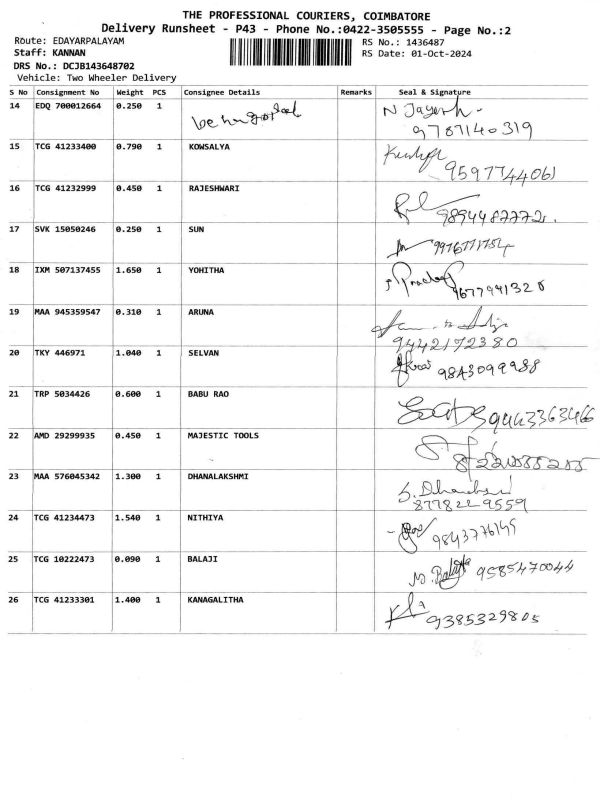 THE PROFESSIONAL COURIERS, COIMBATORE
Delivery Runsheet - P43 - Phone No.:0422-3505555 - Page No.:2
Route: EDAYARPALAYAM RS No.: 1436487
Staff: KANNAN RS Date: 01-Oct-2024
DRS No.: DCJB143648702
Vehicle: Two Wheeler Delivery
S No Consignment No Weight PCS Consignee Details Remarks Seal & Signature
14 EDQ 700012664 0.250 1 N Jayesh
9787140319
15 TCG 41233400 0.790 1 KOWSALYA
9597744061
16 TCG 41232999 0.450 1 RAJESHWARI
17 SVK 15050246 0.250 1 SUN
18 IXM 507137455 1.650 1 YOHITHA
9677941328
19 MAA 945359547 0.310 1 ARUNA
9442172380
20 TKY 446971 1.040 1 SELVAN 9843099988
21 TRP 5034426 0.600 1 BABU RAO
9443363466
22 AMD 29299935 0.450 1 MAJESTIC TOOLS
23 MAA 576045342 1.300 1 DHANALAKSHMI
8778229559
24 TCG 41234473 1.540 1 NITHIYA
9843776145
25 TCG 10222473 0.090 1 BALAJI
9585470044
26 TCG 41233301 1.400 1 KANAGALITHA
9385329805